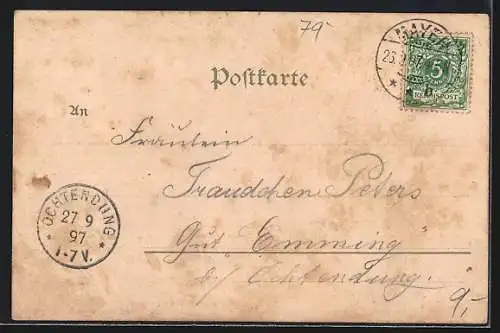 79-
MAYEN
26.9.97
5
REICHSPOST
Postkarte
An
Fräulein
Traudchen Peters
Gut Emming
b/ Ochtendung.
OCHTENDUNG
27 9
97
1-7 V.
9,-